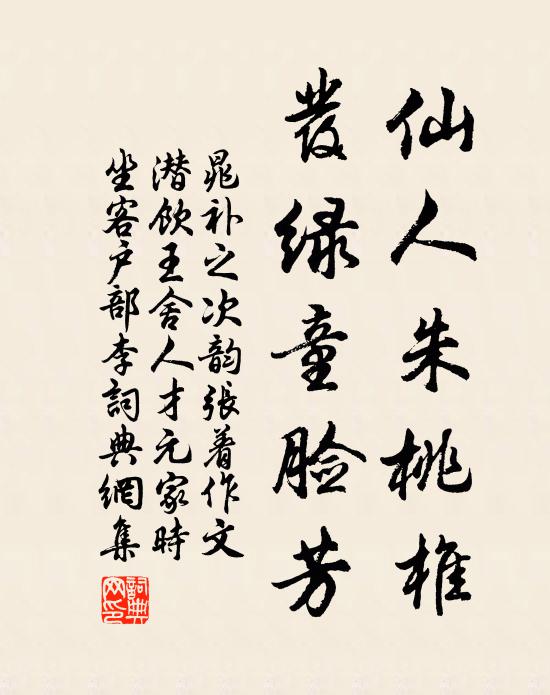 仙人朱桃椎
发绿童脸芳
晁补之次韵張著作文
潜飲王舍人才元家時
坐客户部李詞典網集
詞典网印